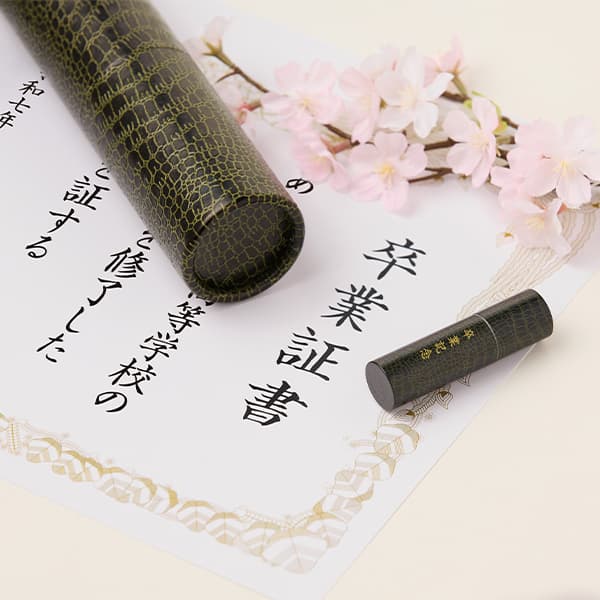 卒業証書
め
等学校の
を修了した
を証する
和七年
卒業記念